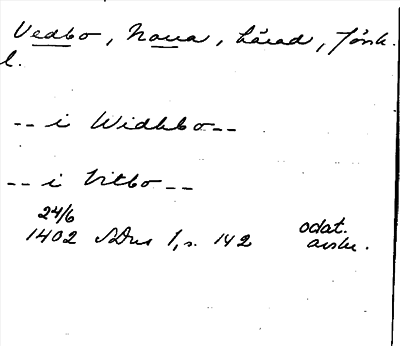 Vedbo, Norra, härad, Jönk.
l.
-- i Widhbo--
-- i Vitbo --
24/6
1402 SDns 1, s. 142 odat.
avskr.